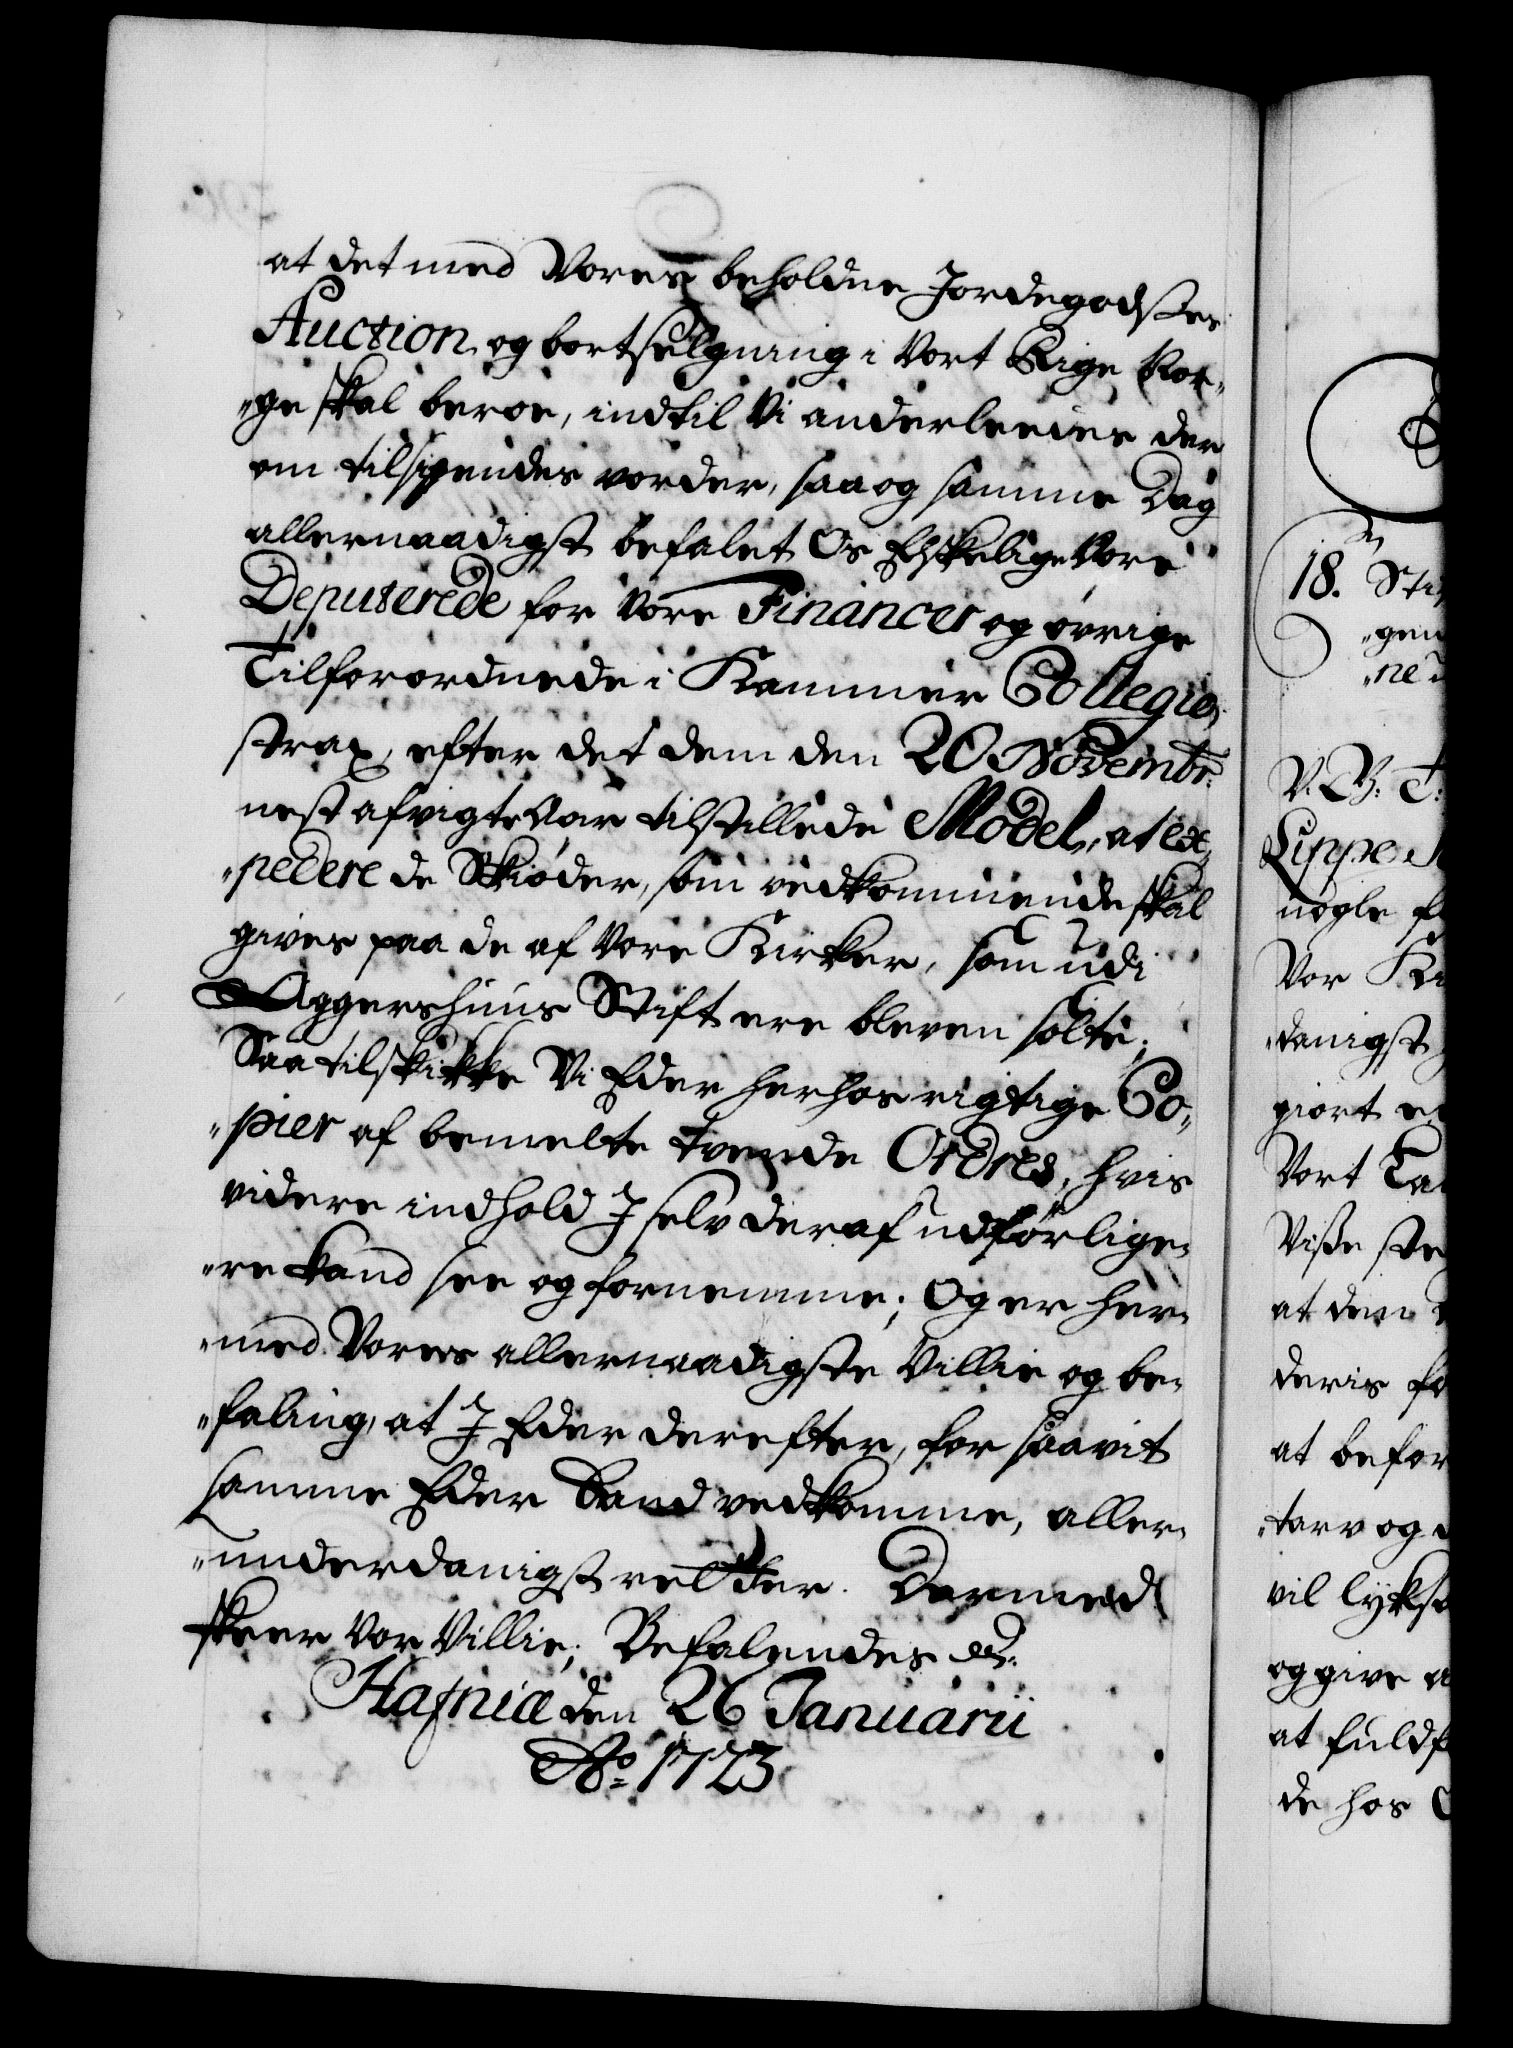 at det med Vores beholdne Jordegodses
Auction, og bortselgning i Vort Rige Nor-
"ge skal beroe, indtil Vi anderleedes der
om tilsigendes vorder, saa og samme Dag
allernaadigst befalet Os Elskelige Vore
Deputerede for Vore Financer og øvrige
Tilforordnede i Kammer Collegio,
strax, efter det dem den 20 Novembr:
nest afvigte Aar tilstillede Model, at ex-
"pedere de Skiøder, som vedkommende skal
gives paa de af Vore Kirker, som udi
Aggershuus Stift ere bleven solte;
Saa tilskikke Vi Eder herhos rigtige Co-
"pier af bemelte tvende Ordres, hvis
videre indhold J selv deraf udførlige-
"re kand see og fornemme; Og er her-
"med Vores allernaadigste Villie og be-
"faling, at J Eder derefter, for saavit
samme Eder Land vedkomme, aller-
"underdanigst retter. Dermed
skeer Vor Villie; Befalendes etc.
Hafniæ den 26 Januarii
Ao 1723
18. Sti
"gen
"ne
V. G. T:
Lippe
nogle
Vor Ki
"danigst
giort
Vort Ta
Visse
at den
deris
at befor
"tarv og
vil lykse
og give
at fuld
de hos